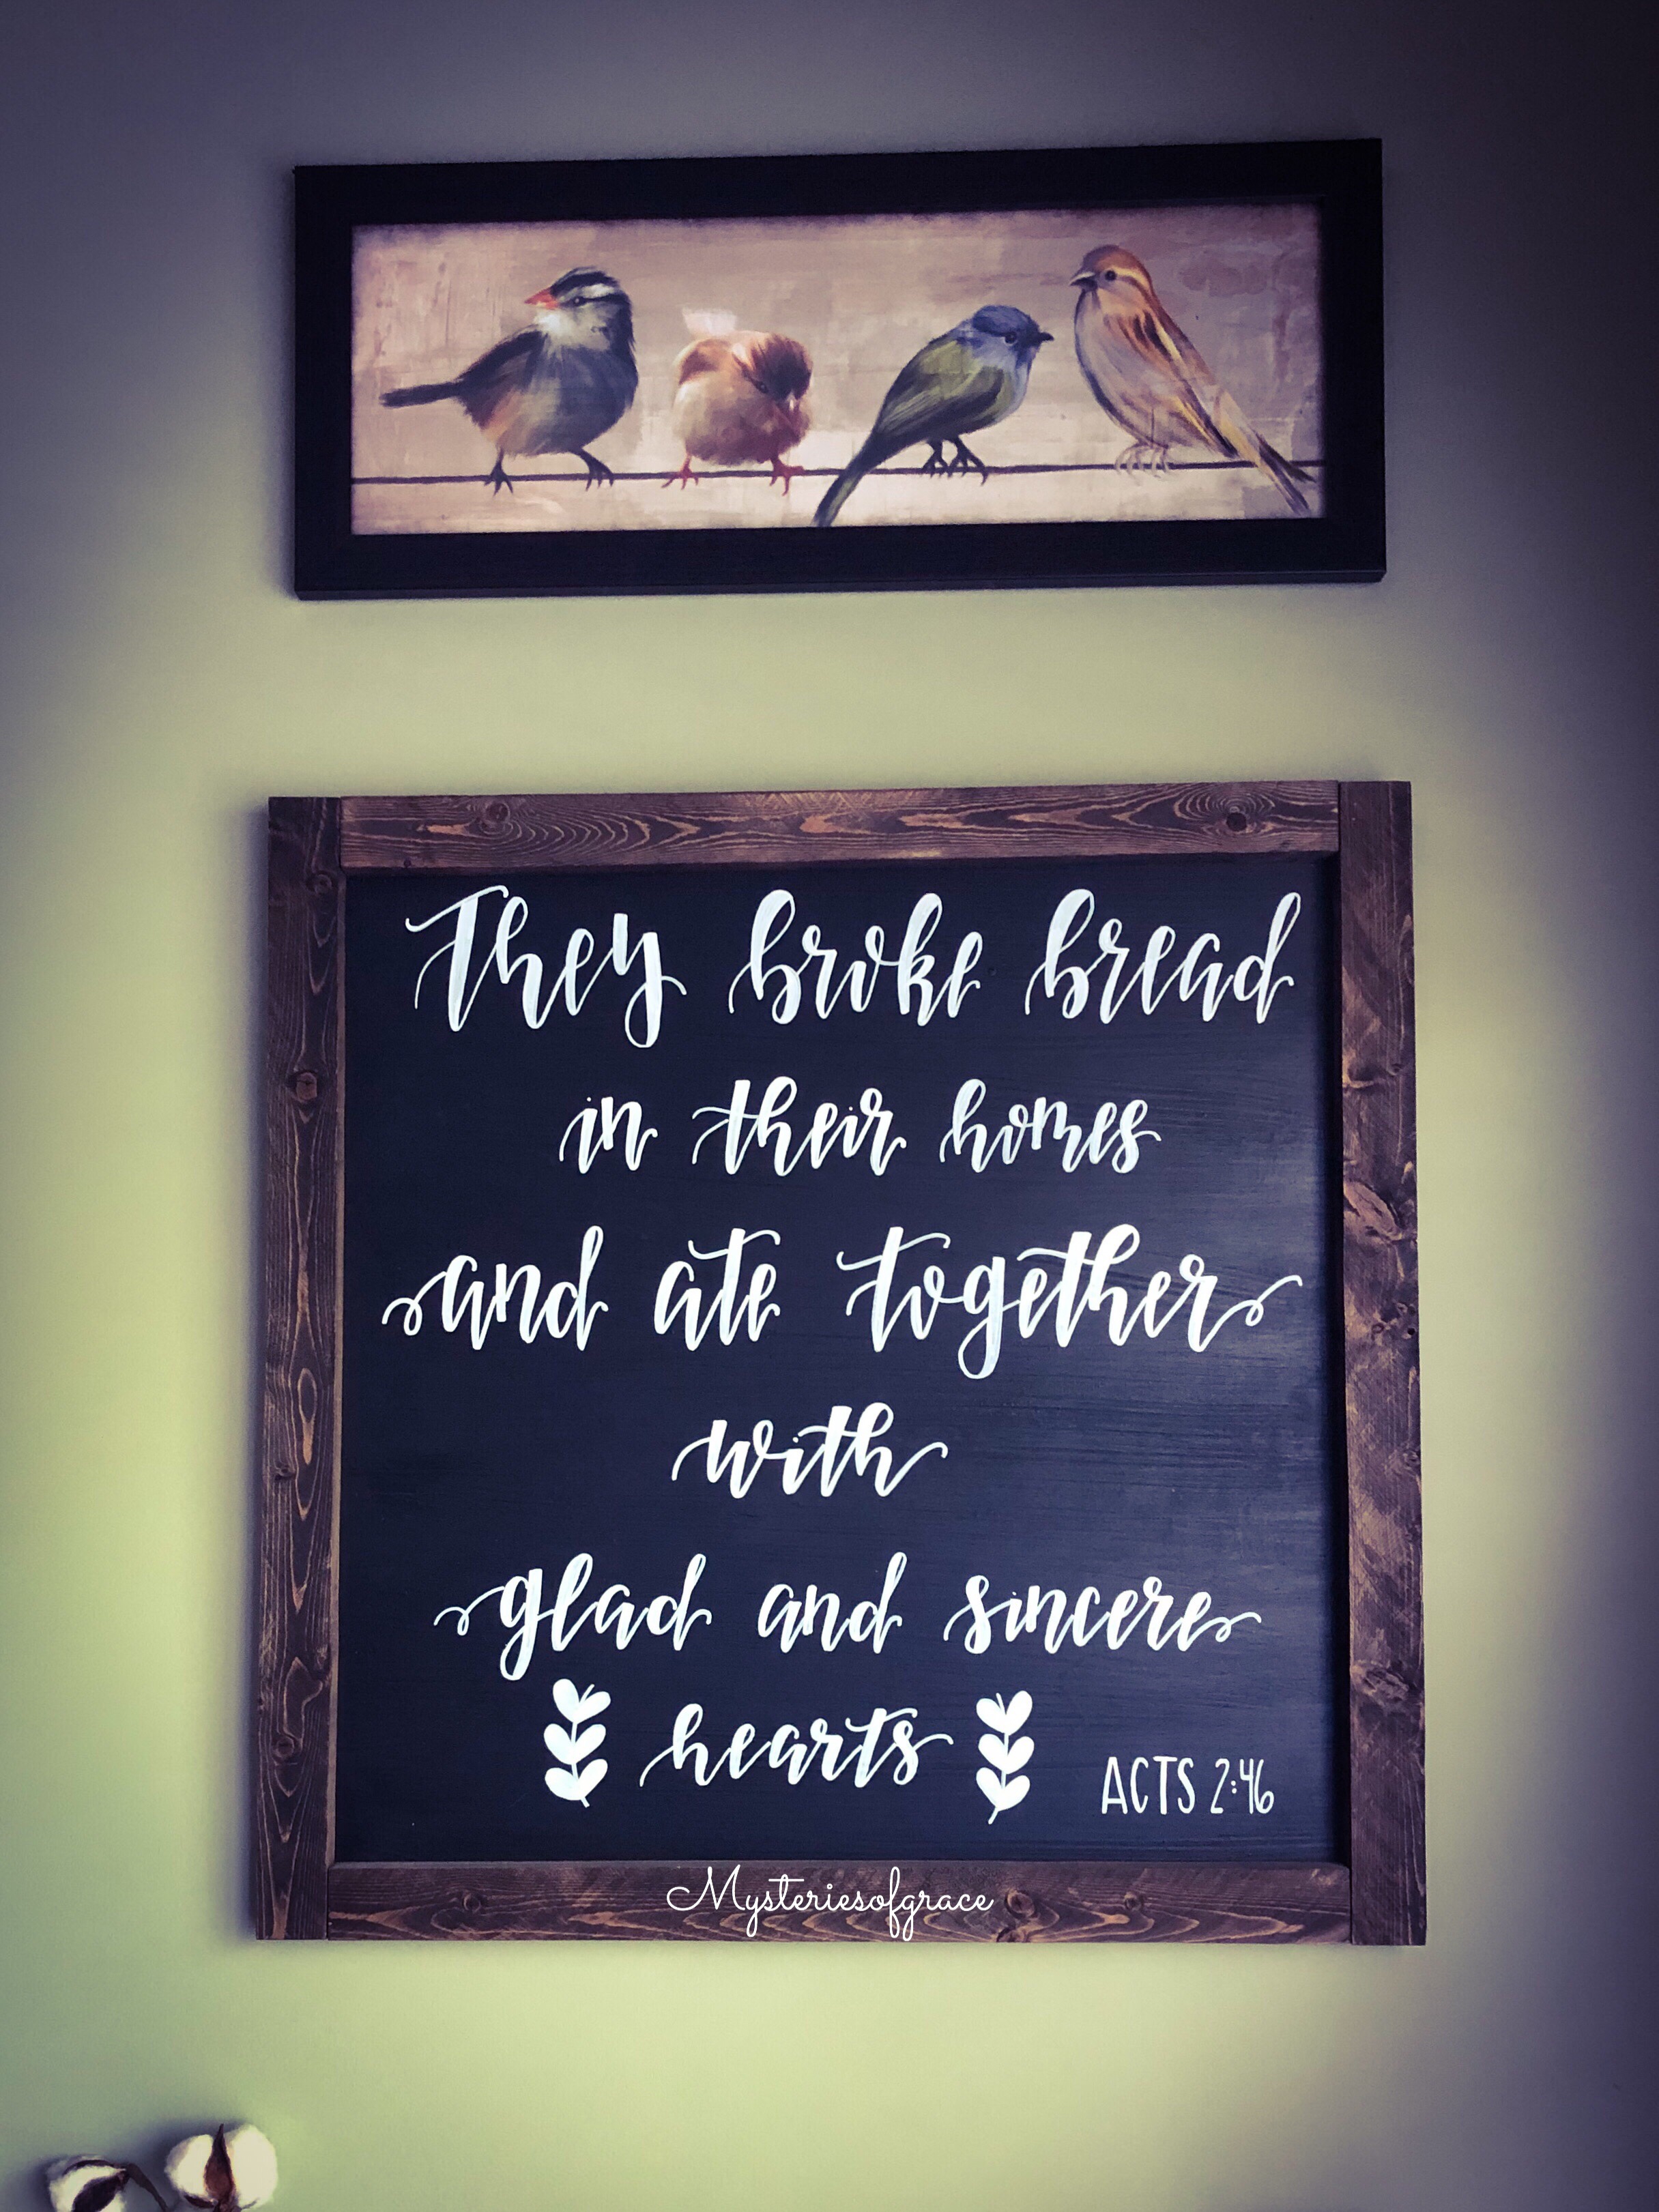 They broke bread
in their homes
and ate together
with
glad and sincere
hearts
ACTS 2:46
Mysteriesofgrace